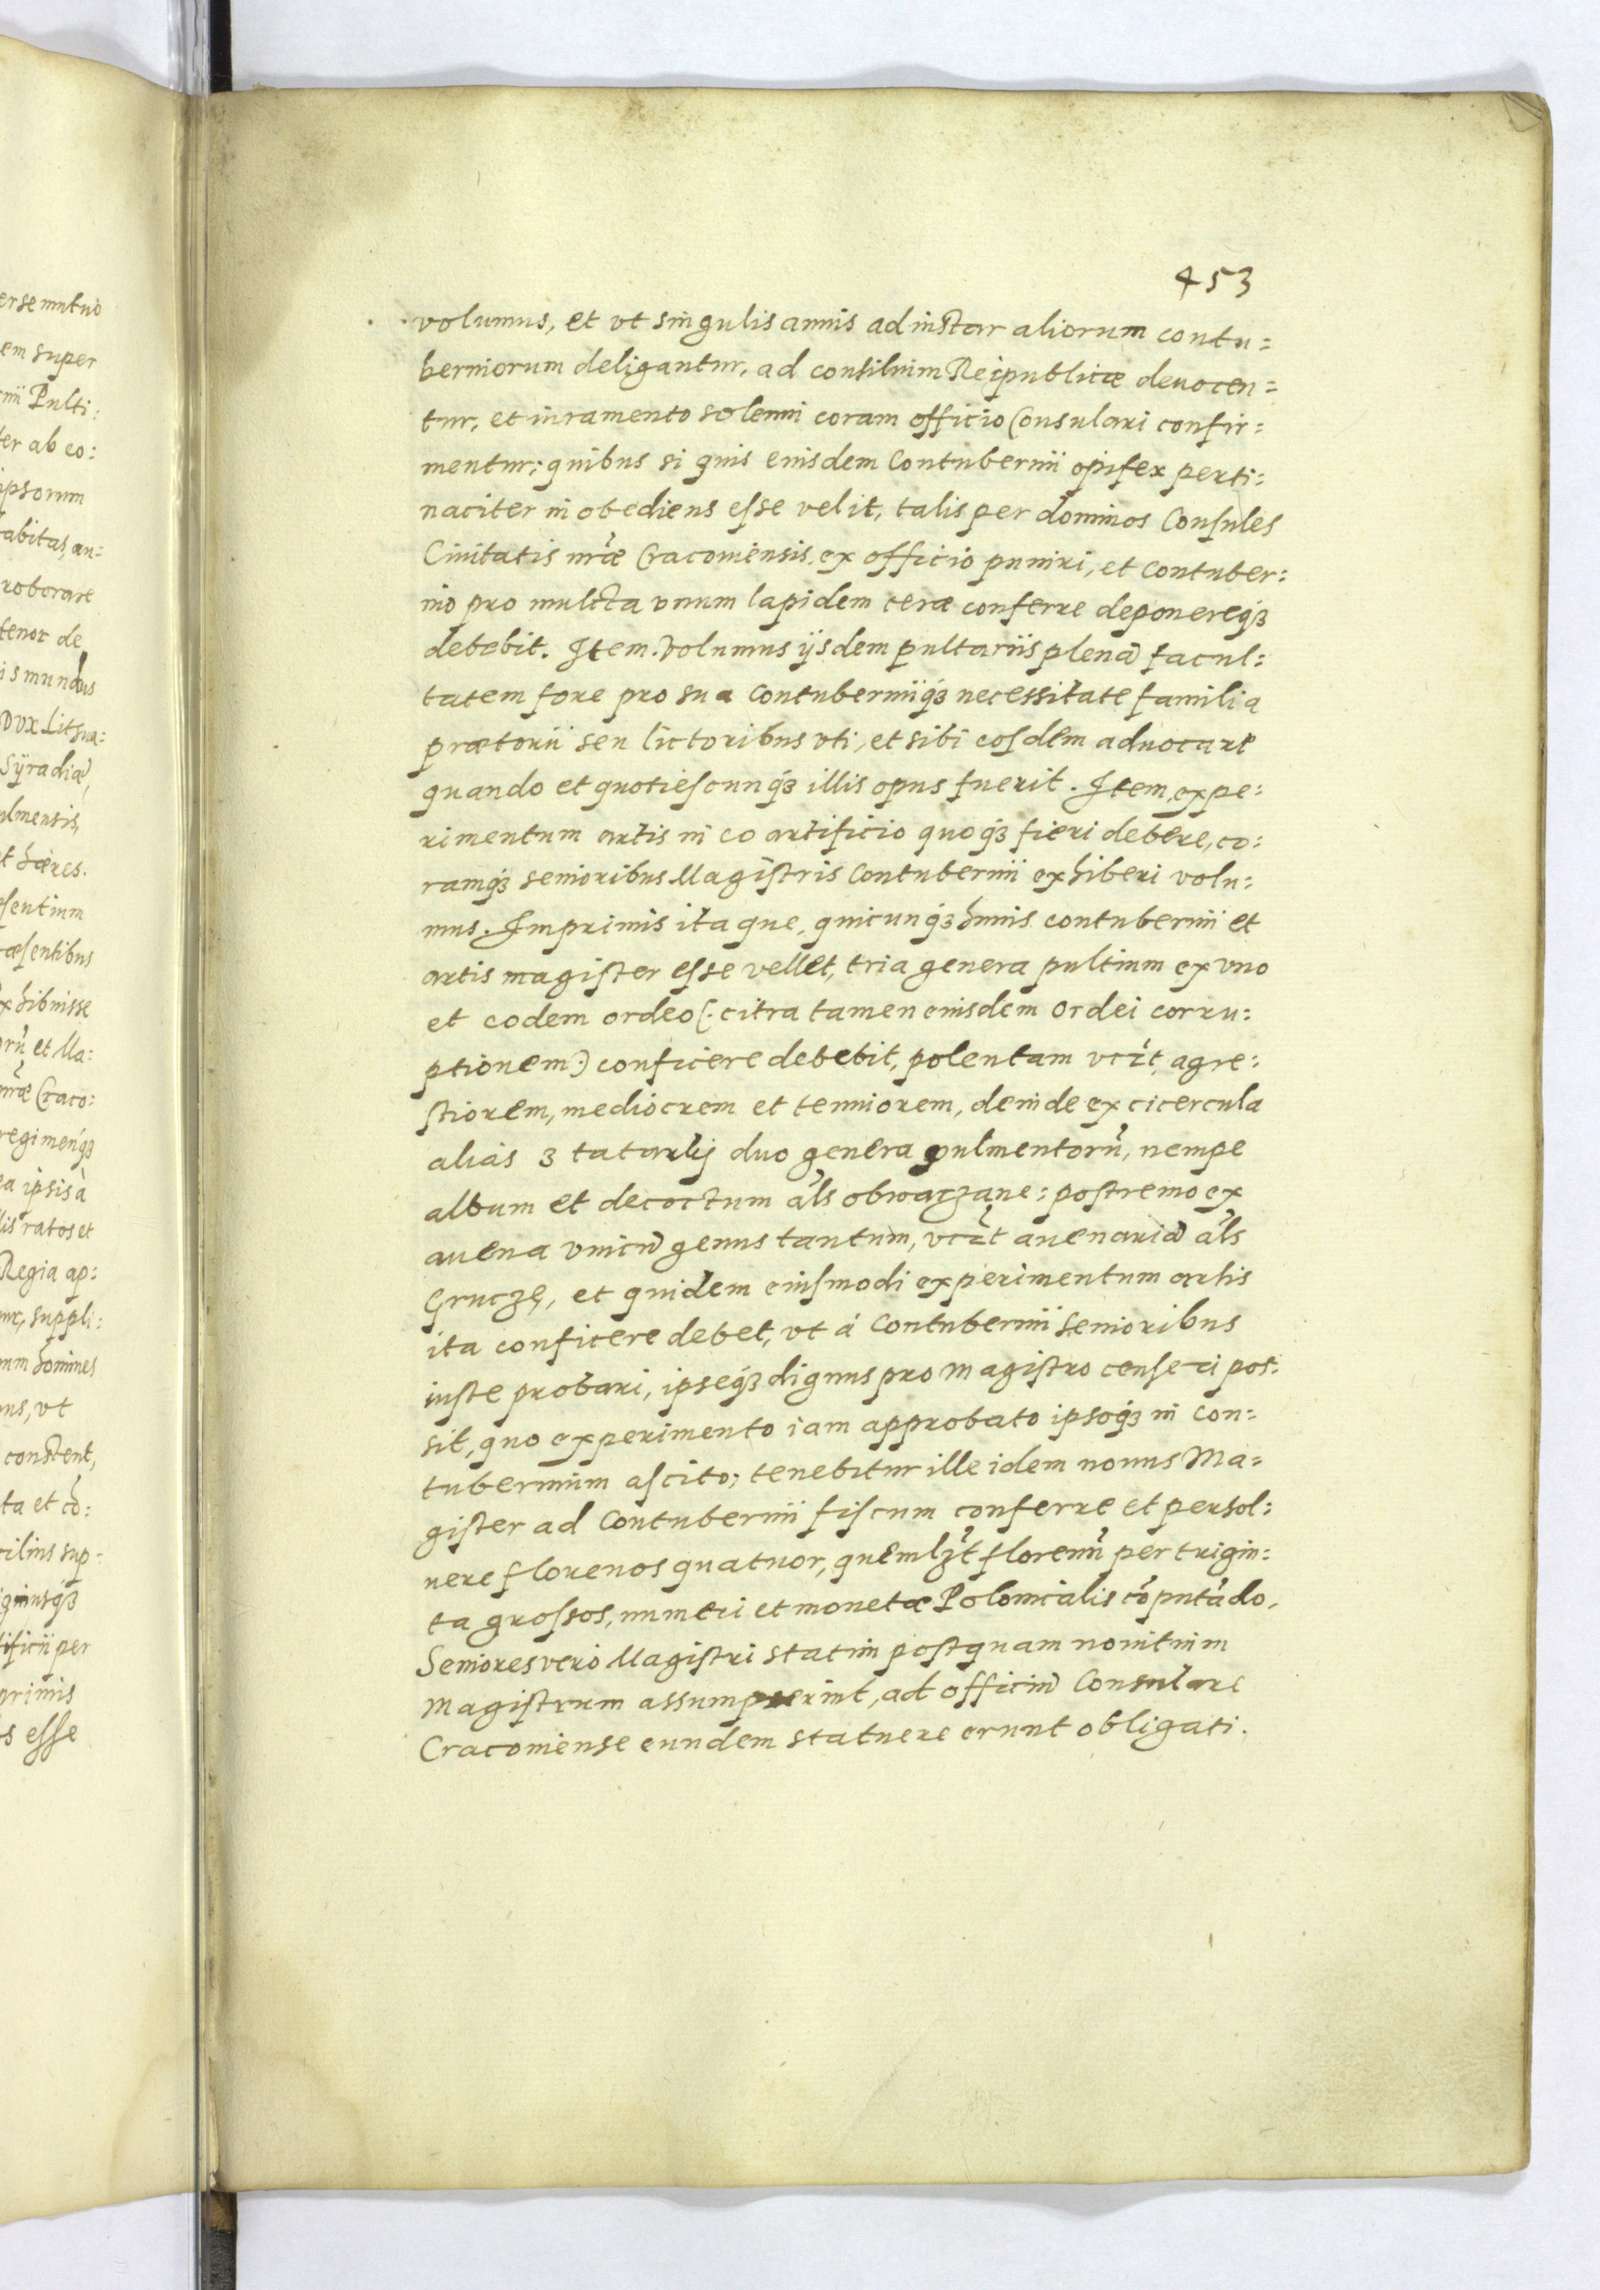 453
volumus, et vt singulis annis ad instar aliorum contu=
berniorum deligantur, ad consiliuim Reipublicæ deuocen=
tur, et iuramento solenni coram officio Consulari confir=
mentur; quibus si quis eiusdem Contubernii opifex perti=
naciter inobediens esse velit, talis per dominos Consules
Ciuitatis nr̃æ Cracouiensis, ex officio puniri, et contuber=
nio pro mulcta vnum lapidem ceræ conferre deponereq́ꝫ
debebit. Item. Volumus ijsdem pultariis plenã facul=
tatem fore pro sua Contuberniiq́ꝫ necessitate familia
prætorii seu lictoribus vti, et sibi eosdem aduocare
quando et quotiescunq́ꝫ illis opus fuerit. Item, expe=
rimentum artis in eo artificio quoq́ꝫ fieri debere, co=
ramq́ꝫ senioribus Magistris Contubernii exhiberi volu=
mus. Imprimis itaque, quicunq́ꝫ huius contubernii et
artis magister esse vellet, tria genera pultium ex vno
et eodem ordeo (. citra tamen eiusdem ordei corru=
ptionem .) conficere debebit, polentam vcꝫt, agre=
stiorem, mediocrem et tenuiorem, deinde ex cicercula
aliás 3 tatarky duo genera pulmentorũ, nempe
album et decoctum al̃s obwarzane: postremo ex
auena vnicũ genus tantum, vcꝫt auenariã al̃s
Gruczę, et quidem eiusmodi experimentum artis
ita conficere debet, vt á Contubernii Senioribus
iuste probari, ipseq́ꝫ dignus pro Magistro censeri pos=
sit, quo experimento iam approbato ipsoq́ꝫ in con=
tubernium ascito; tenebitur ille idem nouus Ma=
gister ad Contubernii fiscum conferre et persol=
uere florenos quatuor, quemlꝫt florenũ per trigin=
ta grossos, numeri et monetæ Polonicalis cõputãdo.
Seniores vero Magistri statim postquam nouitium
Magistrum assumpserint, ad officiũ Consulare
Cracouiense eundem statuere erunt obligati.